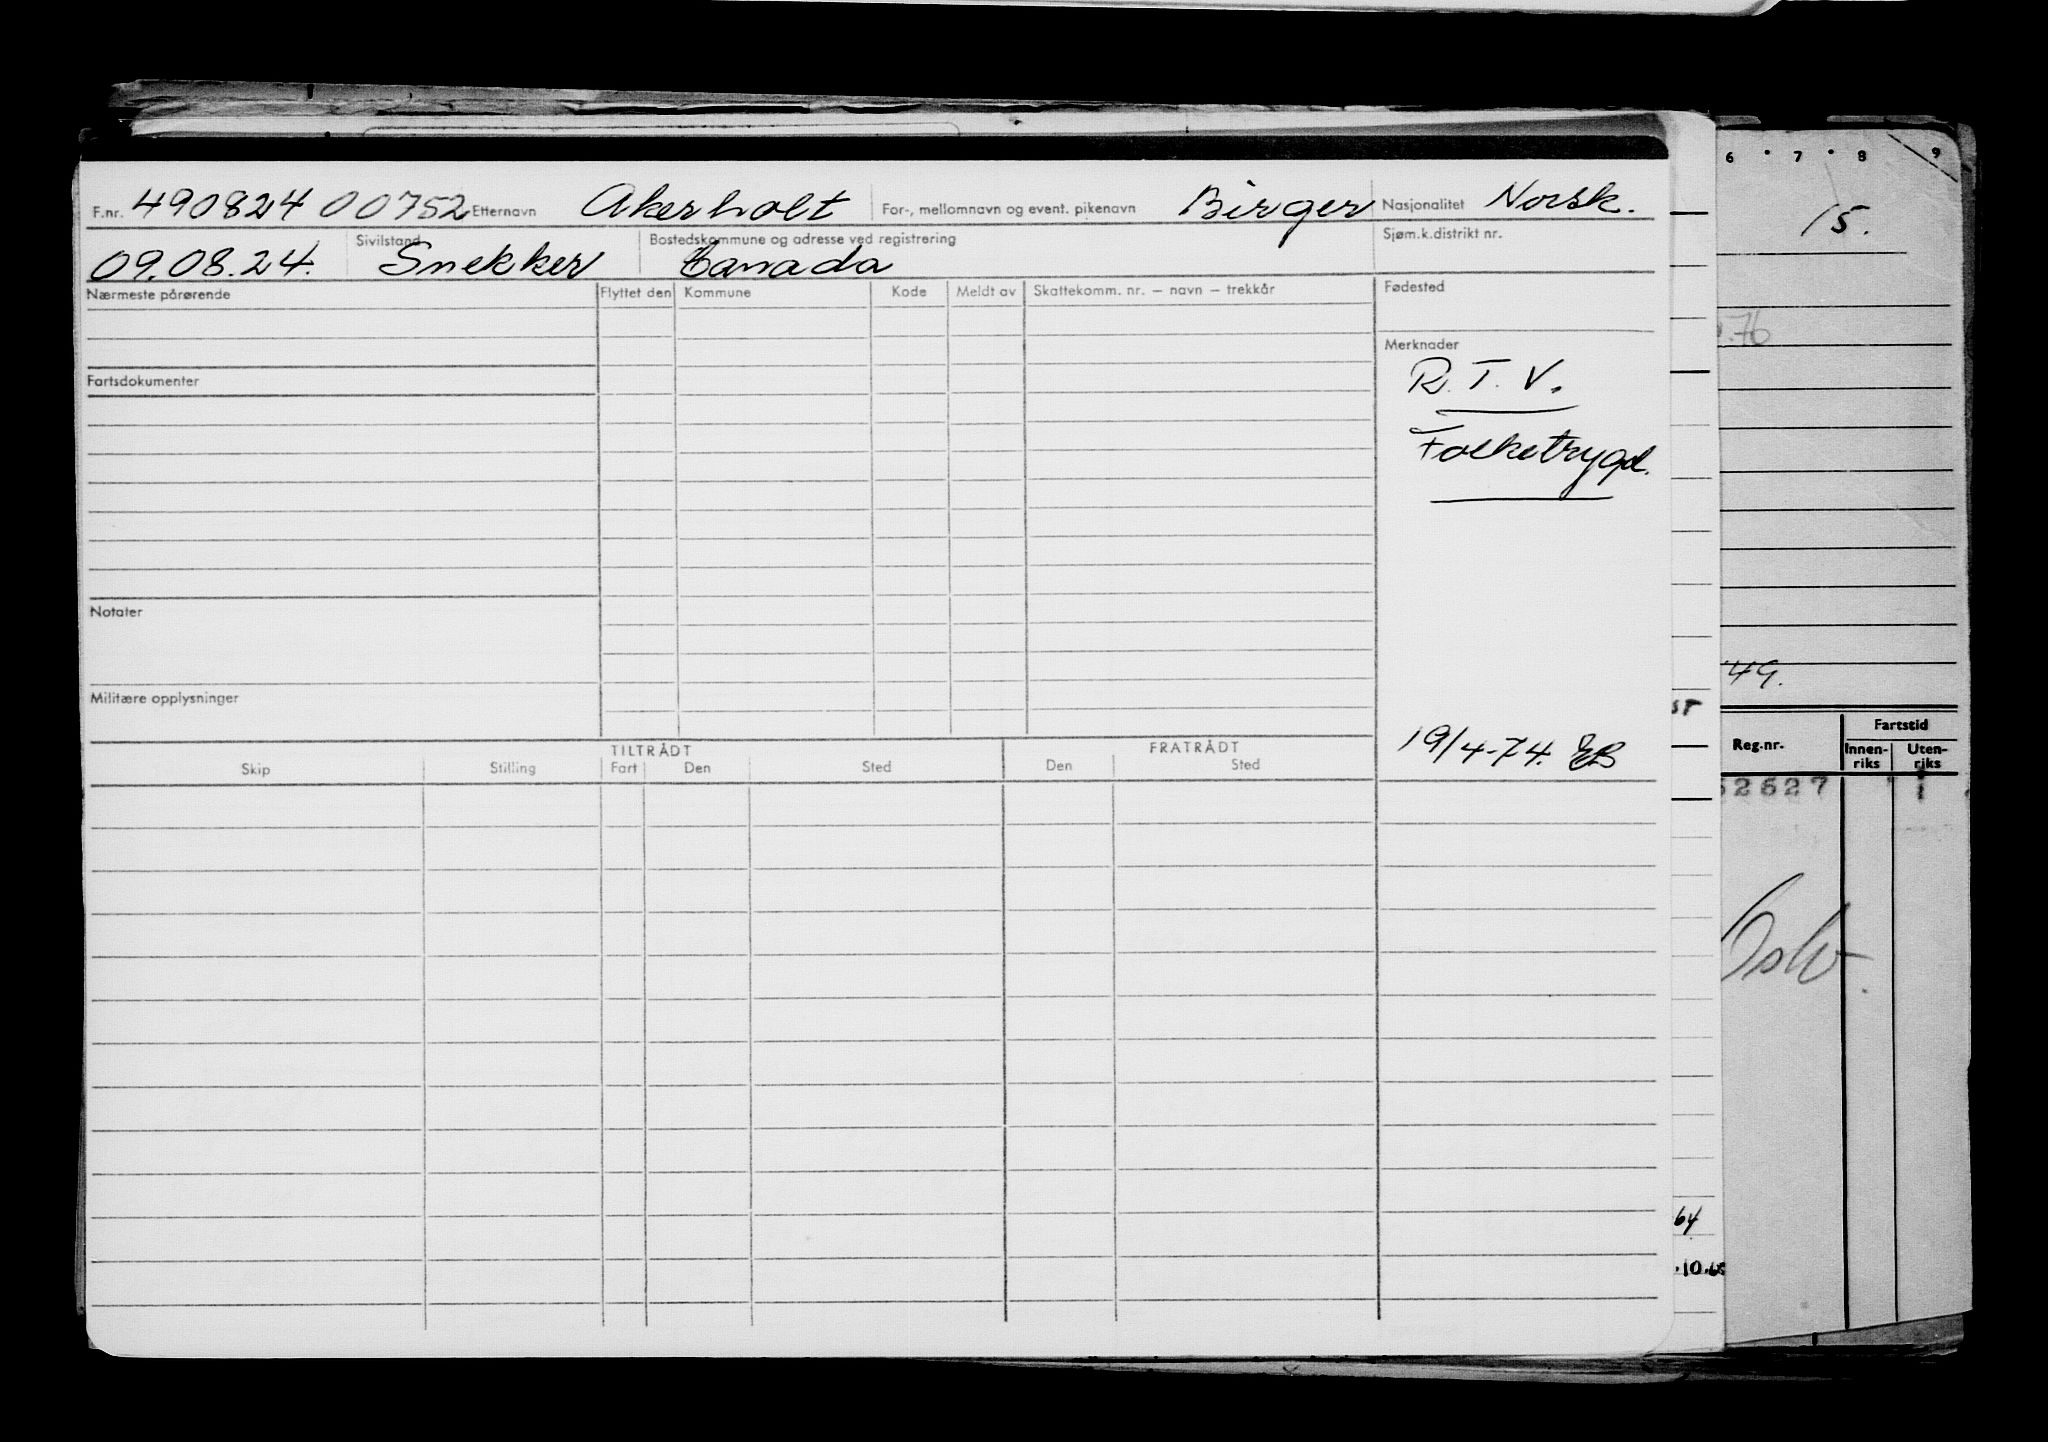 F.nr. 490824 00752 Etternavn Akerholt For-, mellomnavn og event. pikenavn Birger Nasjonalitet Norsk.
09.08.24. Sivilstand Snekker Bostedskommune og adresse ved registrering Canada Sjøm.k.distrikt nr.
Nærmeste pårørende Flyttet den Kommune Kode Meldt av Skattekomm. nr. – navn – trekkår Fødested
Merknader
R. T. V.
Folketrygd.
Fartsdokumenter
Notater
Militære opplysninger
19/4-74. EB
TILTRÅDT FRATRÅDT
Skip Stilling Fart Den Sted Den Sted
6 7 8 9
15.
.76
49.
Fartstid
Reg.nr. Innen-riks Uten-riks
52627 1
Oslo.
64
.10.68